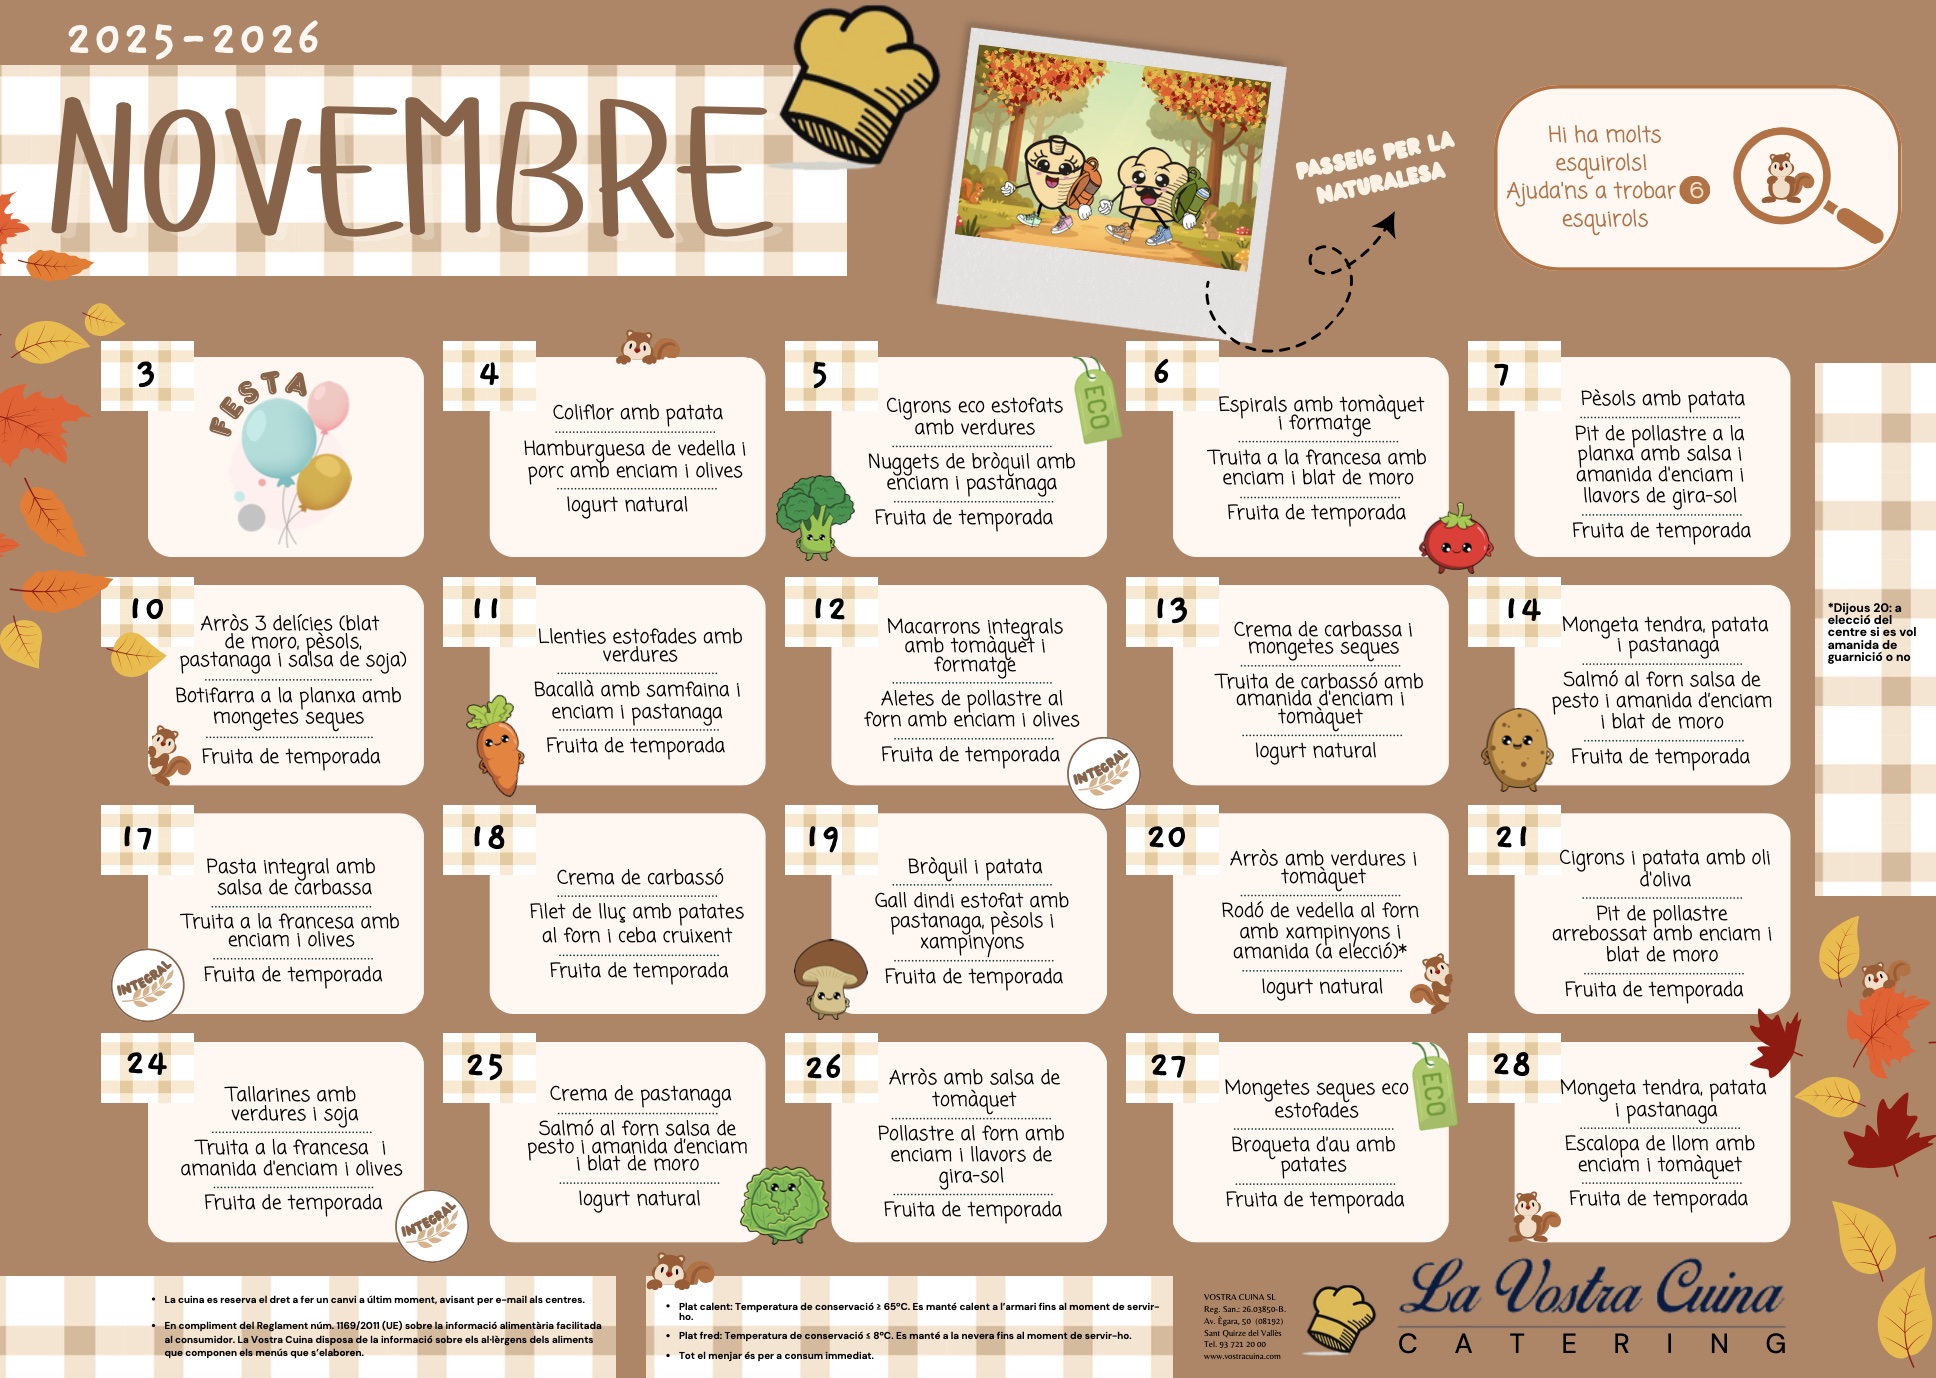 2025-2026
NOVEMBRE
PASSEIG PER LA
NATURALESA
Hi ha molts
esquirols!
Ajuda'ns a trobar 6
esquirols
3
FESTA
4
Coliflor amb patata
Hamburguesa de vedella i
porc amb enciam i olives
Iogurt natural
5
ECO
Cigrons eco estofats
amb verdures
Nuggets de bròquil amb
enciam i pastanaga
Fruita de temporada
6
Espirals amb tomàquet
i formatge
Truita a la francesa amb
enciam i blat de moro
Fruita de temporada
7
Pèsols amb patata
Pit de pollastre a la
planxa amb salsa i
amanida d'enciam i
llavors de gira-sol
Fruita de temporada
10
Arròs 3 delícies (blat
de moro, pèsols,
pastanaga i salsa de soja)
Botifarra a la planxa amb
mongetes seques
Fruita de temporada
11
Llenties estofades amb
verdures
Bacallà amb samfaina i
enciam i pastanaga
Fruita de temporada
12
Macarrons integrals
amb tomàquet i
formatge
Aletes de pollastre al
forn amb enciam i olives
Fruita de temporada
INTEGRAL
13
Crema de carbassa i
mongetes seques
Truita de carbassó amb
amanida d'enciam i
tomàquet
Iogurt natural
14
Mongeta tendra, patata
i pastanaga
Salmó al forn salsa de
pesto i amanida d'enciam
i blat de moro
Fruita de temporada
*Dijous 20: a
elecció del
centre si es vol
amanida de
guarnició o no
17
Pasta integral amb
salsa de carbassa
Truita a la francesa amb
enciam i olives
Fruita de temporada
INTEGRAL
18
Crema de carbassó
Filet de lluç amb patates
al forn i ceba cruixent
Fruita de temporada
19
Bròquil i patata
Gall dindi estofat amb
pastanaga, pèsols i
xampinyons
Fruita de temporada
20
Arròs amb verdures i
tomàquet
Rodó de vedella al forn
amb xampinyons i
amanida (a elecció)*
Iogurt natural
21
Cigrons i patata amb oli
d'oliva
Pit de pollastre
arrebossat amb enciam i
blat de moro
Fruita de temporada
24
Tallarines amb
verdures i soja
Truita a la francesa i
amanida d'enciam i olives
Fruita de temporada
INTEGRAL
25
Crema de pastanaga
Salmó al forn salsa de
pesto i amanida d'enciam
i blat de moro
Iogurt natural
26
Arròs amb salsa de
tomàquet
Pollastre al forn amb
enciam i llavors de
gira-sol
Fruita de temporada
27
ECO
Mongetes seques eco
estofades
Broqueta d'au amb
patates
Fruita de temporada
28
Mongeta tendra, patata
i pastanaga
Escalopa de llom amb
enciam i tomàquet
Fruita de temporada
• La cuina es reserva el dret a fer un canvi a últim moment, avisant per e-mail als centres.
• En compliment del Reglament núm. 1169/2011 (UE) sobre la informació alimentària facilitada
al consumidor. La Vostra Cuina disposa de la informació sobre els al·lèrgens dels aliments
que componen els menús que s'elaboren.
• Plat calent: Temperatura de conservació ≥ 65ºC. Es manté calent a l'armari fins al moment de servir-
ho.
• Plat fred: Temperatura de conservació ≤ 8ºC. Es manté a la nevera fins al moment de servir-ho.
• Tot el menjar és per a consum immediat.
VOSTRA CUINA SL
Reg. San.: 26.03850-B.
Av. Ègara, 50 (08192)
Sant Quirze del Vallès
Tel. 93 721 20 00
www.vostracuina.com
La Vostra Cuina
CATERING